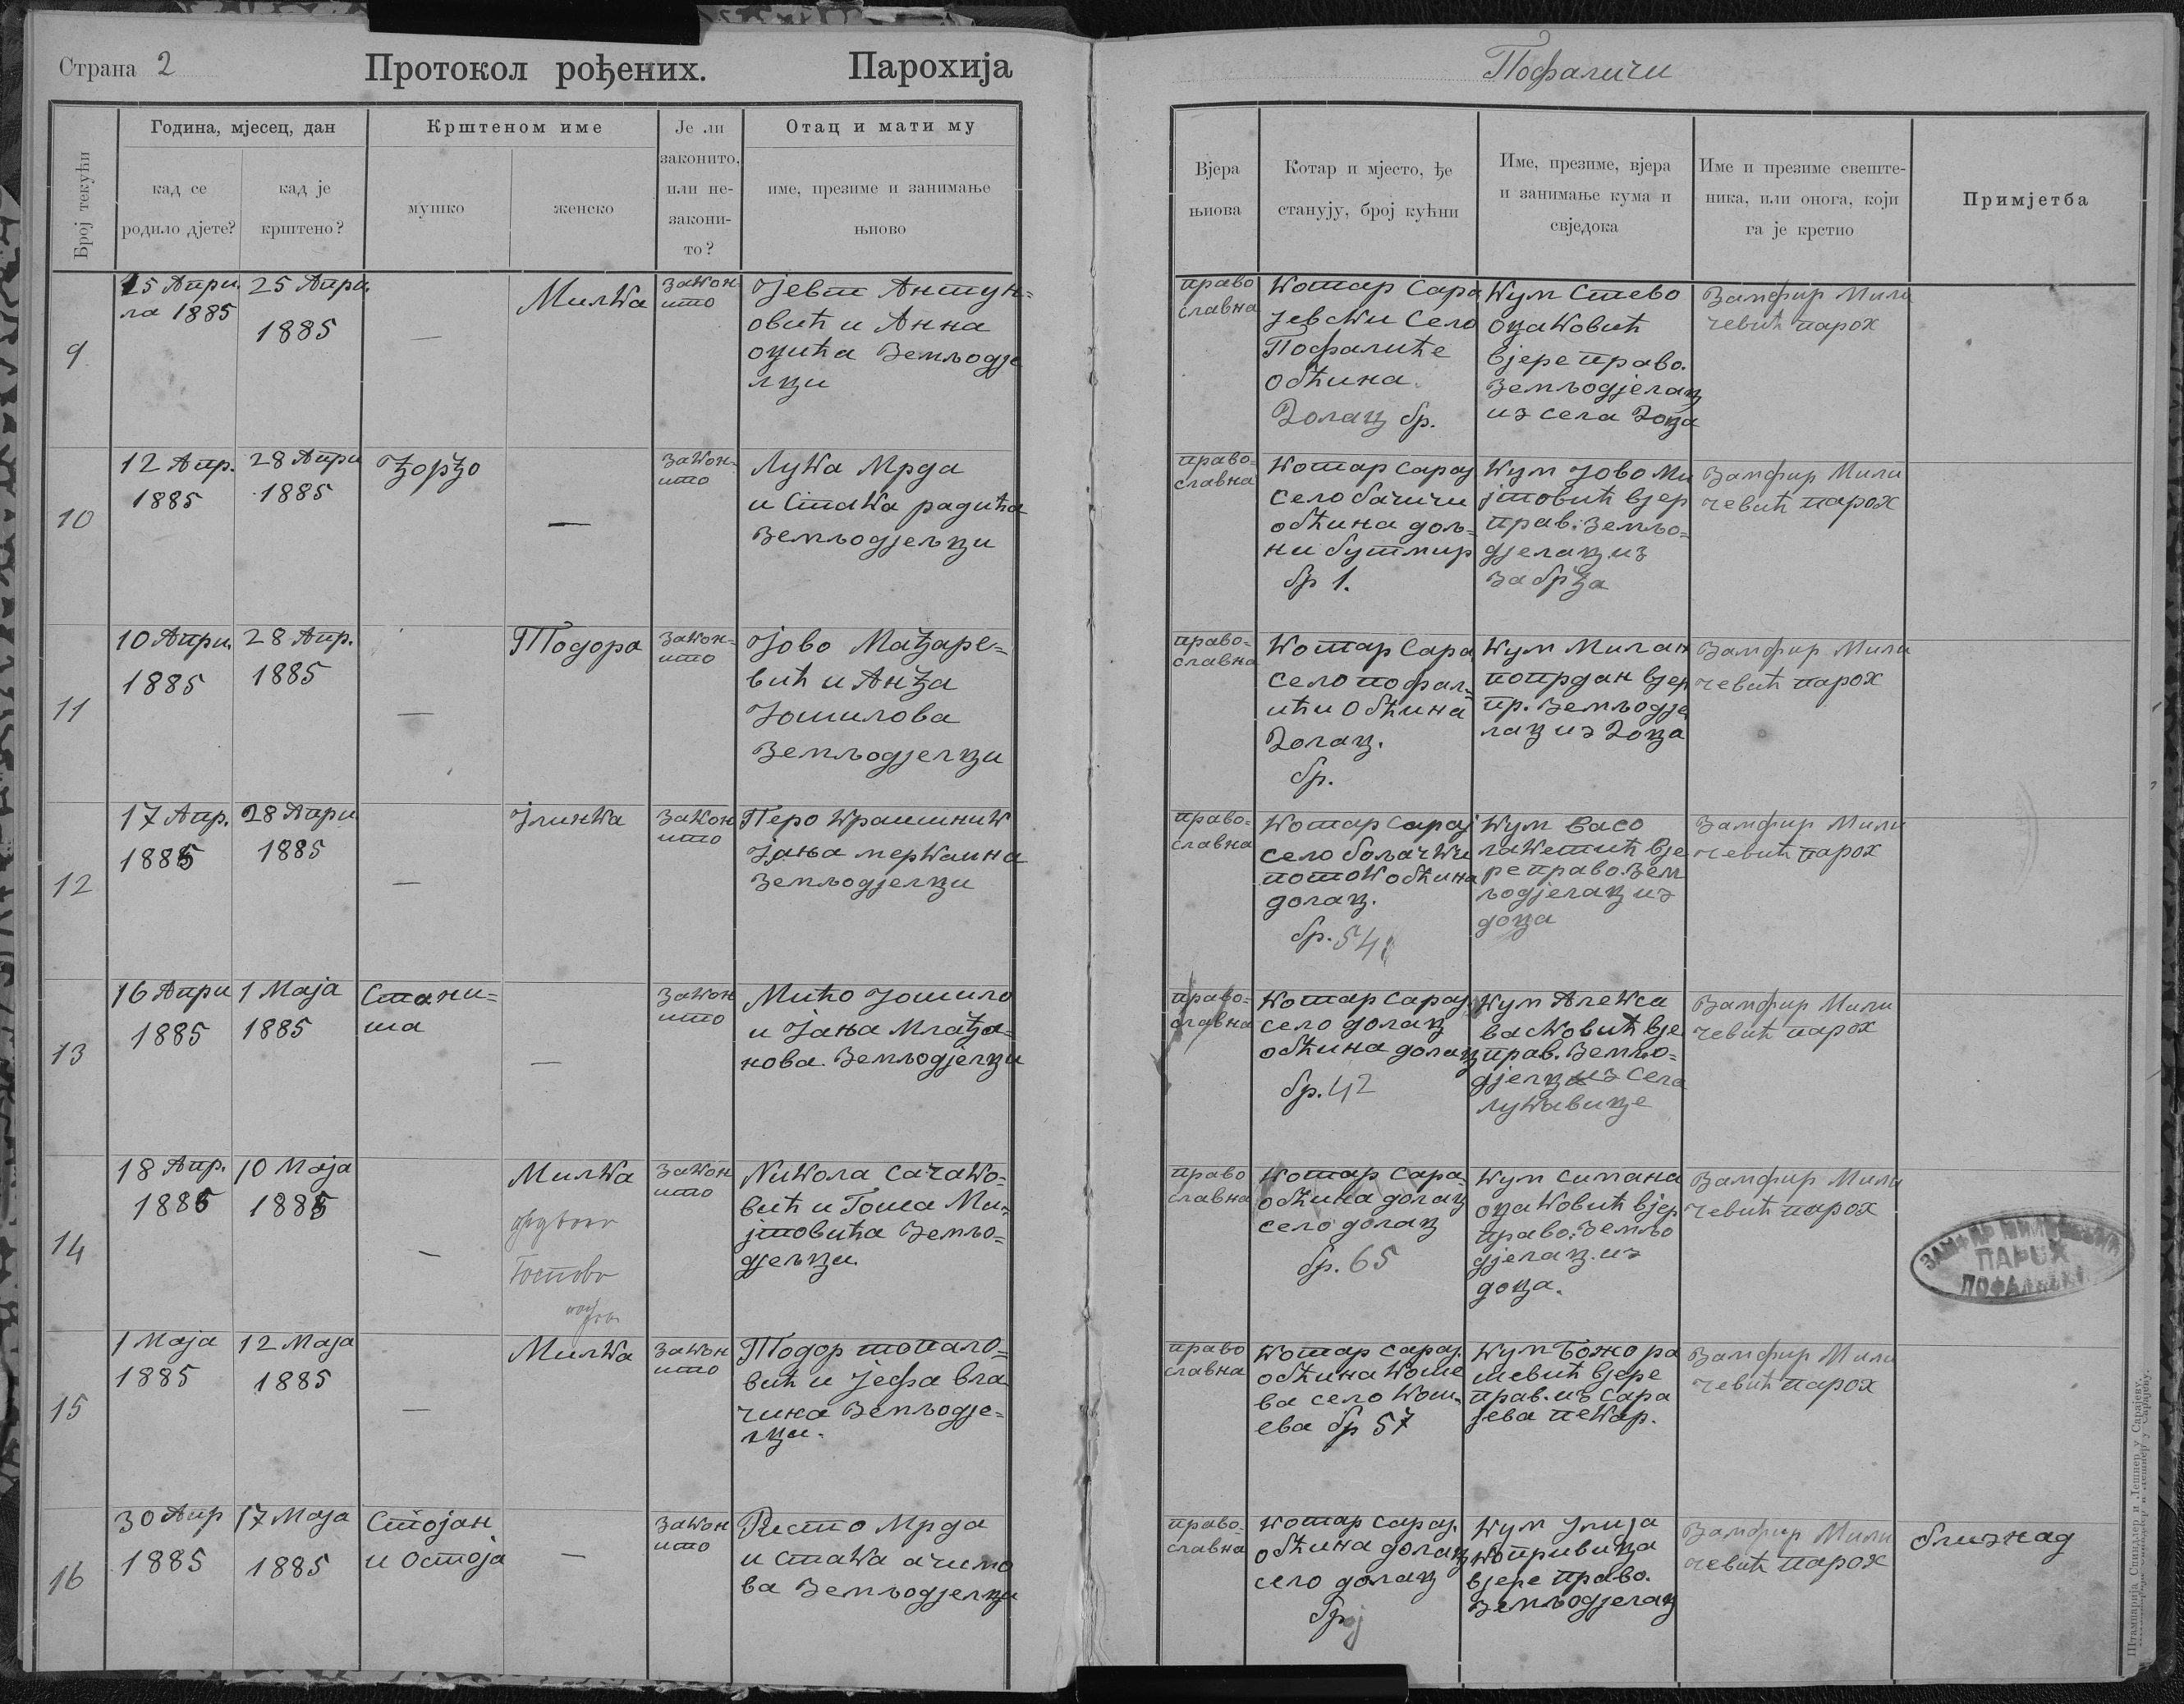 Страна 2
Протокол рођених.
Парохија
Пофаличи
Број текући
Година, мјесец, дан
кад се
родило дјете?
кад је
крштено?
Крштеном име
мушко
женско
Је ли
законито,
или не-
закони-
то?
Отац и мати му
име, презиме и занимање
њиово
Вјера
њиова
Котар и мјесто, ђе
станују, број кућни
Име, презиме, вјера
и занимање кума и
свједока
Име и презиме свеште-
ника, или онога, који
га је крстио
Примјетба
9
15 Апри.
ла 1885
25 Апри.
1885
—
Милка
закон-
ито
Јевт Антун=
овић и Анна
оџића Земљодје
лци
право
славна
Котар Сара
јевски Село
Пофалиће
обћина
Долац бр.
Кум Стево
оџаковић
вјере право.
Земљодјелац
из села Доца
Замфир Мили
чевић парох
10
12 Апр.
1885
28 Апри
1885
Ђорђо
—
закон-
ито
Лука Мрда
и Стака радића
Земљодјељци
право=
славна
Котар Сарај
Село бачичи
обћина дољ-
ни бутмир
бр 1.
Кум Јово Ми
јтовић вјер
прав. Земљо=
дјелац из
забрђа
Замфир Мили
чевић парох
11
10 Апри.
1885
28 Апр.
1885
—
Тодора
закон=
ито
Јово Мађаре=
вић и Анђа
Јошилова
Земљодјелци
право=
славна
Котар Сара
Село пофал=
ићи Обћина
Долац.
бр.
Кум Милан
попрдан вјер
пр. Земљодје
лац из Доца
Замфир Мили
чевић парох
12
17 Апр.
1885
28 Апри
1885
—
Јлинка
Закон
ито
Перо Крашиник
Јања меркаина
Земљодјелци
право=
славна
Котар Сарај
Село бољачки
поток обћина
долац.
бр. 54
Кум Васо
лакетић вје
ре право. Зем
љодјелац из
доца
Замфир Мили
чевић парох
13
16 Апри
1885
1 Маја
1885
Стани=
ша
—
Закон
ито
Мићо Јошило
и Јања Млађа=
нова Земљодјелци
право=
славна
Котар Сарај
село долац
обћина долац
бр. 42
Кум Алекса
васковић вје
прав. Земљо=
дјелц из Села
лукавице
Замфир Мили
чевић парох
14
18 Апр.
1885
10 Маја
1885
—
Милка
Закон
ито
Никола Сачако=
вић и Гоша Ми=
јтовића Земљо=
дјељци.
право
славна
Котар Сара
обћина долац
село долац
бр. 65
Кум Симана
оџаковић вјер
право. Земљо
дјелац. из
доца.
Замфир Мили
чевић парох
ПАРОХ
15
1 Маја
1885
12 Маја
1885
—
Милка
Закон
ито
Тодор топало=
вић и Јефа вла
чина Земљодје=
лци.
право
славна
Котар Сарај.
обћина Коше
ва село Кош.
ева бр 57
Кум Божо ра
шевић вјере
прав. из Сара
јева пекар.
Замфир Мили
чевић парох
16
30 Апр
1885
17 Маја
1885
Стојан
и Остоја
—
Закон
ито
Ристо Мрда
и Стака аћимо
ва Земљодјелци
право=
славна
Котар Сарај.
обћина долац
село долац
број
Кум Јлија
копривица
вјере право.
Земљодјелац
Замфир Мили
чевић парох
близнад
Штампарија Спиндлер и Лешнер у Сарајеву.